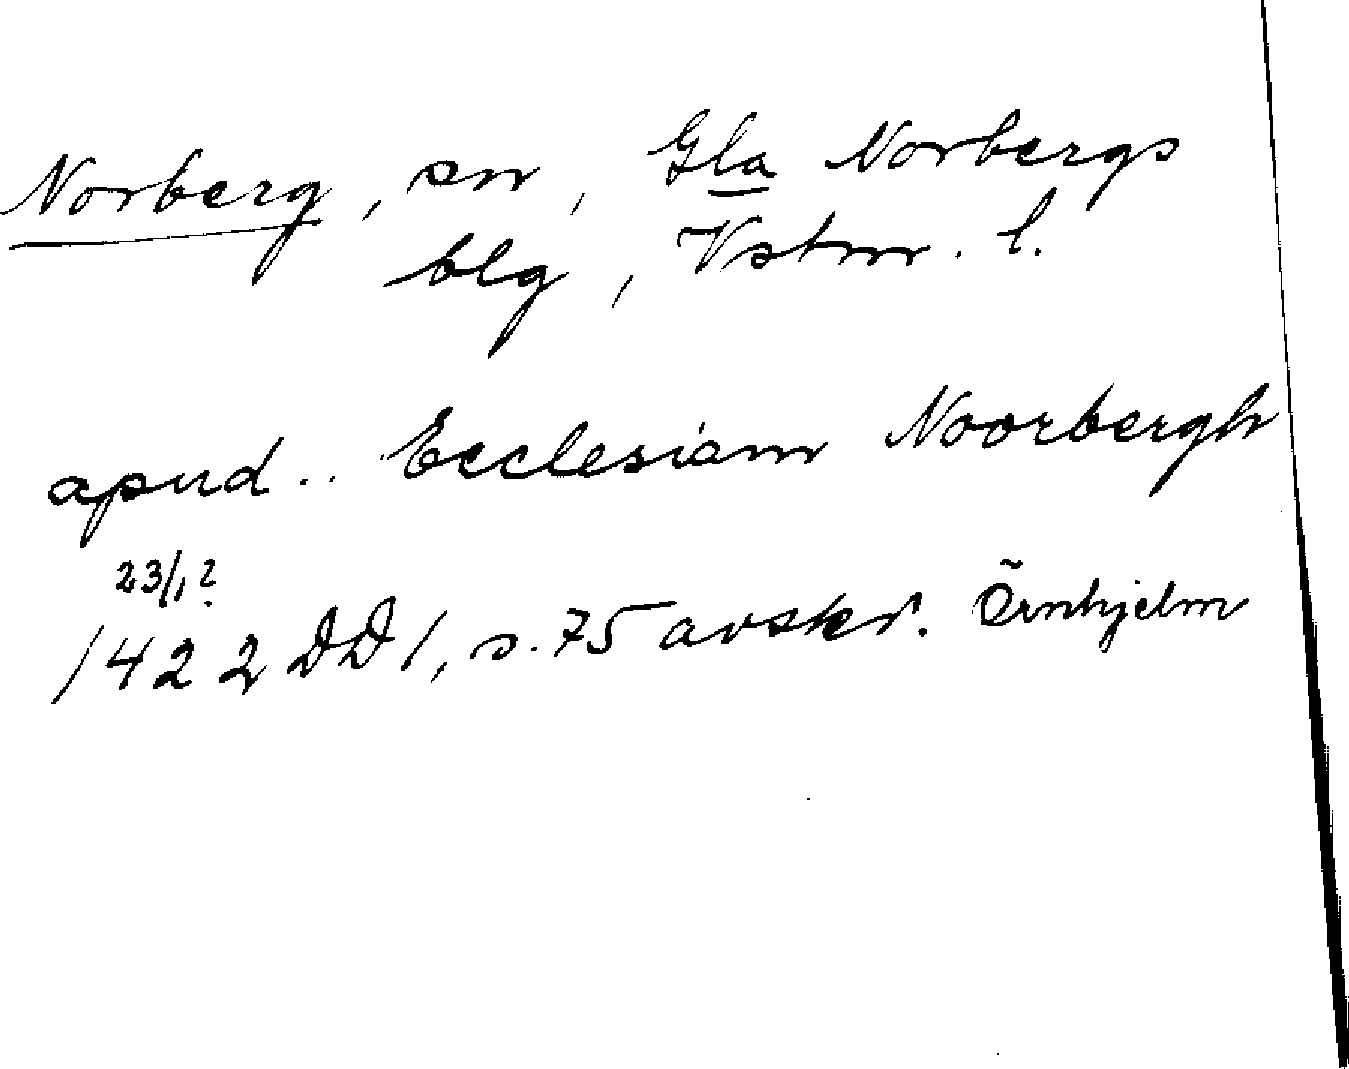 Norberg, sn, Gla Norbergs
blg, Vstm. l.
apud.. Ecclesiam Noorbergh
23/1?
1422 DD1, s. 75 avskr. Örnhjelm